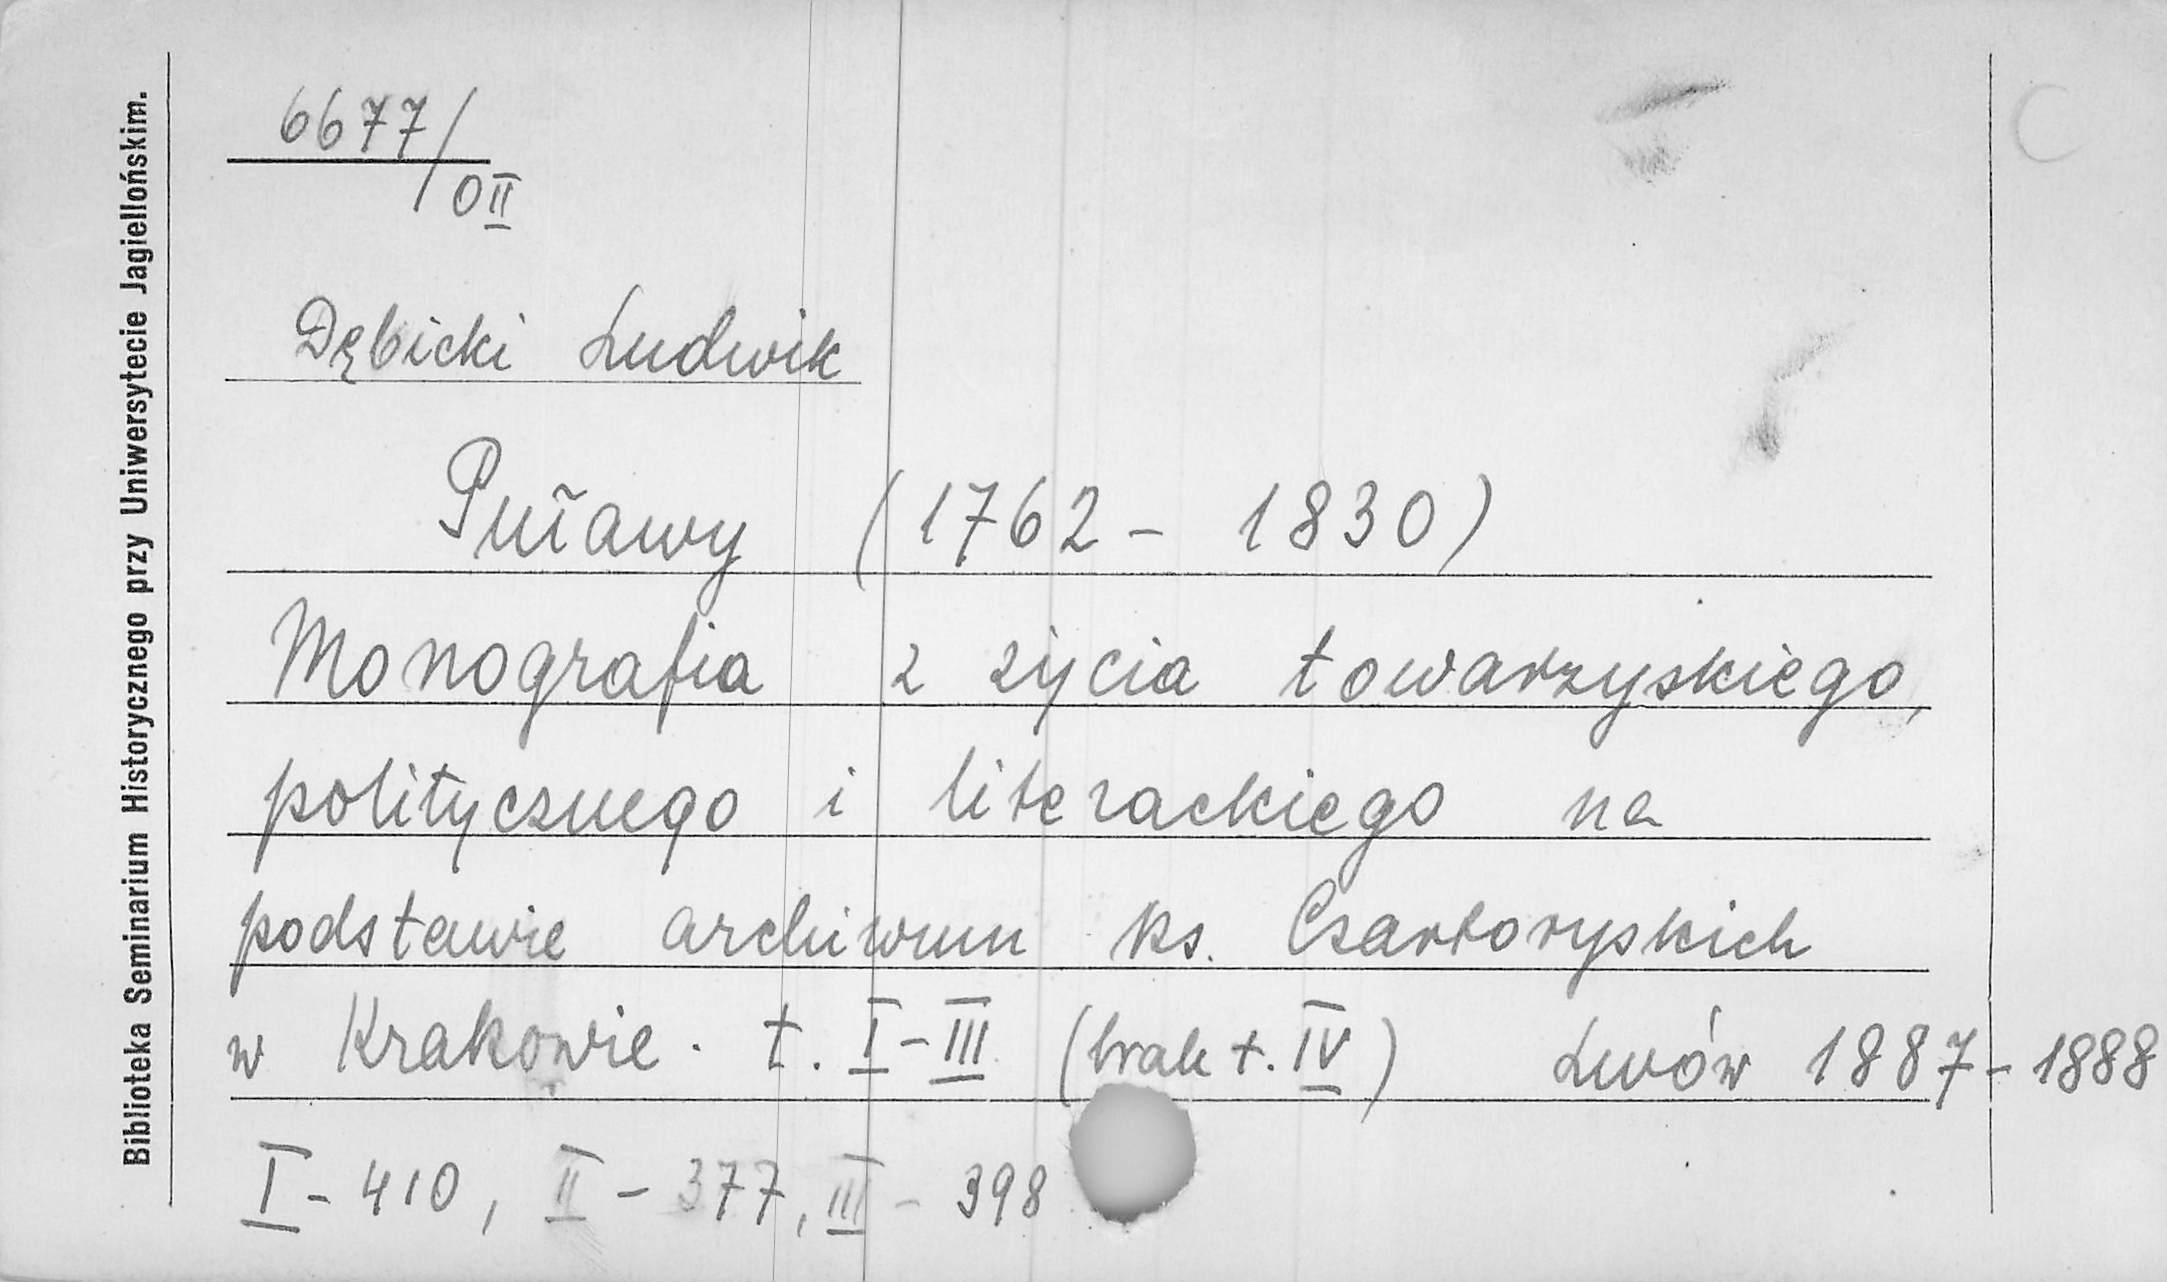 Biblioteka Seminarium Historycznego przy Uniwersytecie Jagiellońskim.
6677/
OII
Dębicki Ludwik
Puławy (1762 - 1830)
Monografia z życia towarzyskiego,
politycznego i literackiego na
podstawie archiwum ks. Czartoryskich
w Krakowie. t. I-III (brak t. IV) Lwów 1887-1888
I - 410, II - 377, III - 398